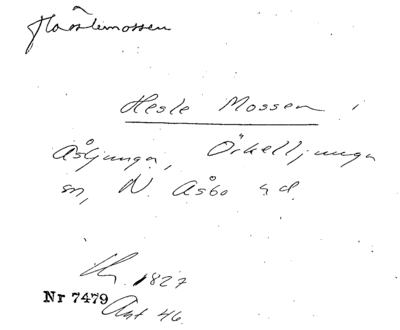 Hesle Mossen i
Åsljunga, Örkelljunga
sn, N. Åsbo hd.
1827
Nr 7479
Akt 46.